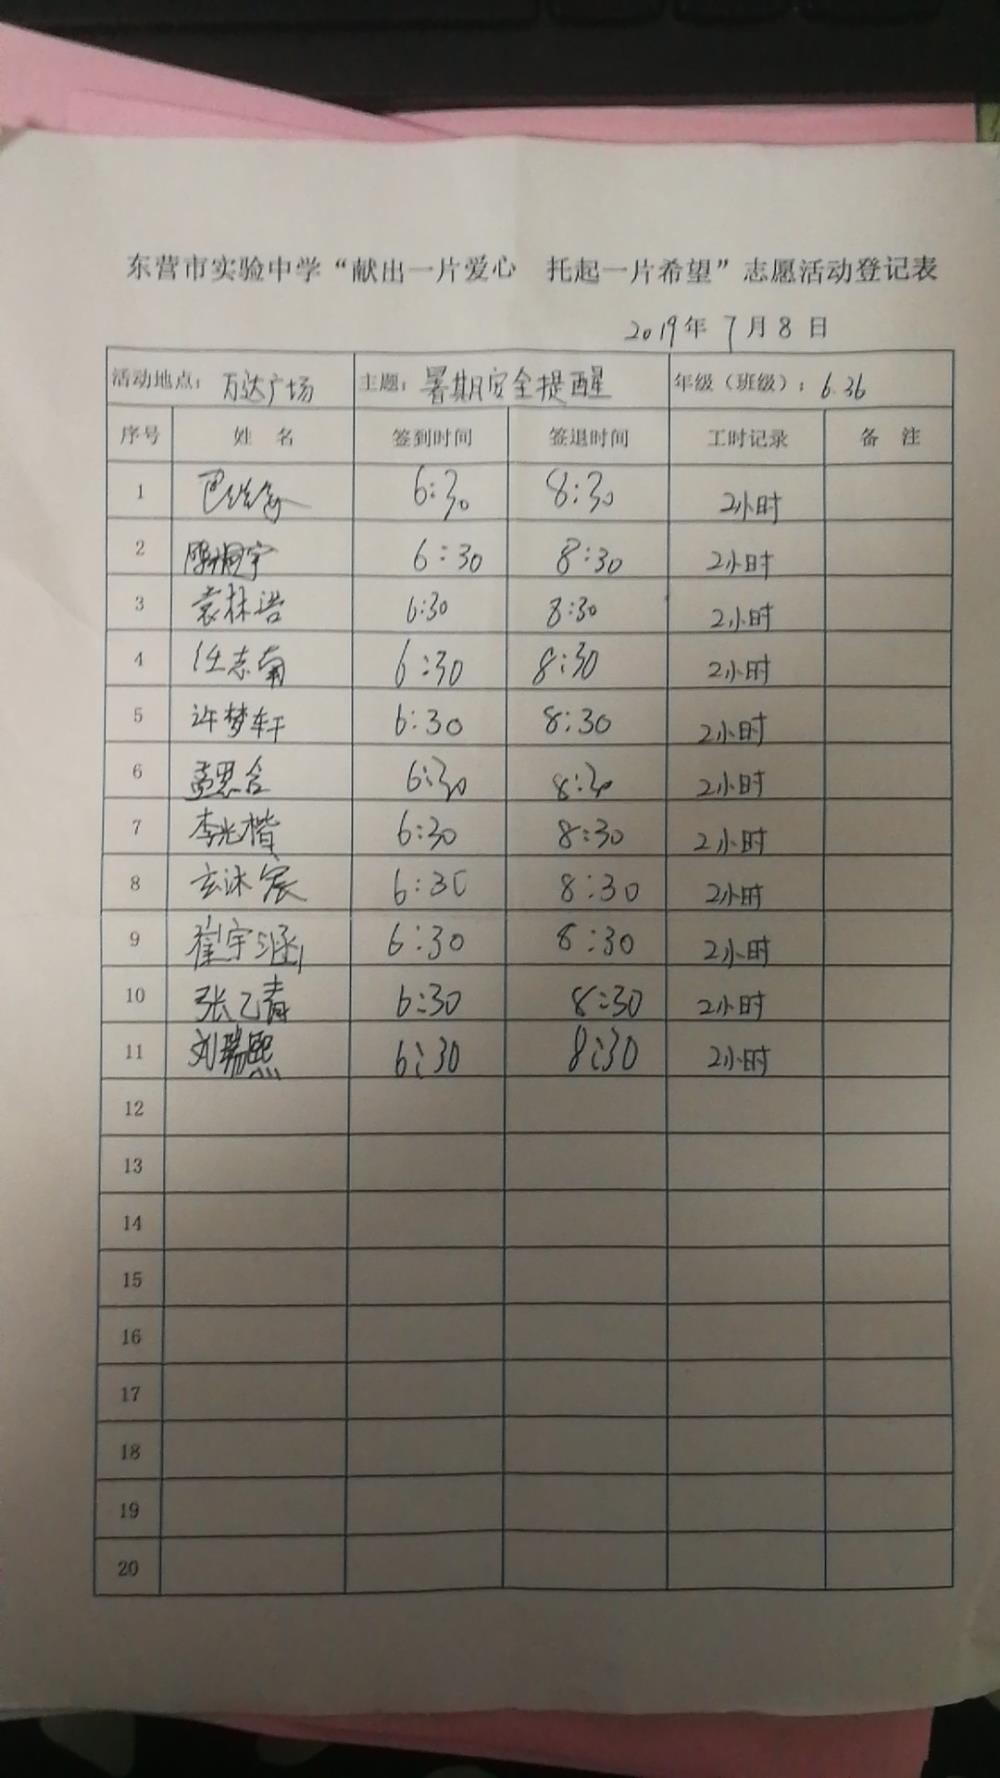 东营市实验中学“献出一片爱心 托起一片希望”志愿活动登记表
2019年 7月8日
活动地点：万达广场 主题：暑期安全提醒 年级（班级）：6.36
序号 姓 名 签到时间 签退时间 工时记录 备 注
1 6:30 8:30 2小时
2 6:30 8:30 2小时
3 袁林浩 6:30 8:30 2小时
4 任志南 6:30 8:30 2小时
5 许梦轩 6:30 8:30 2小时
6 孟思含 6:30 8:30 2小时
7 李光楷 6:30 8:30 2小时
8 玄沐宸 6:30 8:30 2小时
9 崔宇涵 6:30 8:30 2小时
10 张乙青 6:30 8:30 2小时
11 刘瑞熙 6:30 8:30 2小时
12
13
14
15
16
17
18
19
20